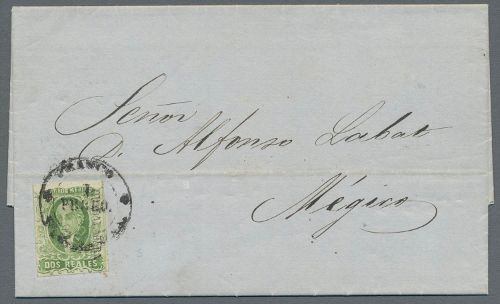 Señor
D. Alfonso Labat
Mégico
FRANCO
DOS REALES